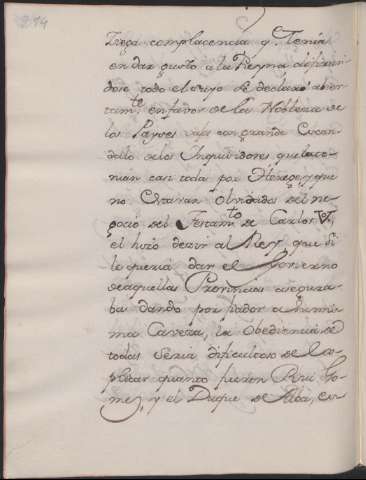 294
complacencia q.e Tenia
en dar gusto a la Reyna
todo el suyo se declaró abier-
tam.te en favor de la Nobleza de
los Payses vajo con grande Escan-
dallo de los Inquisidores que la te-
nian casi toda por Herege, y que
no Estavan olvidados del ne-
gocio del Testam.to de Carlos V,
el hizo dezir al Rey, que si
le queria dar el Govierno
de aquellas Provincias asegura-
ba dando por fiador a su mis-
ma Caveza, la obediencia de
todas seria dificultoso de Com-
pletar quanto fueron Rui Go-
mez, y el Duque de Alba, en